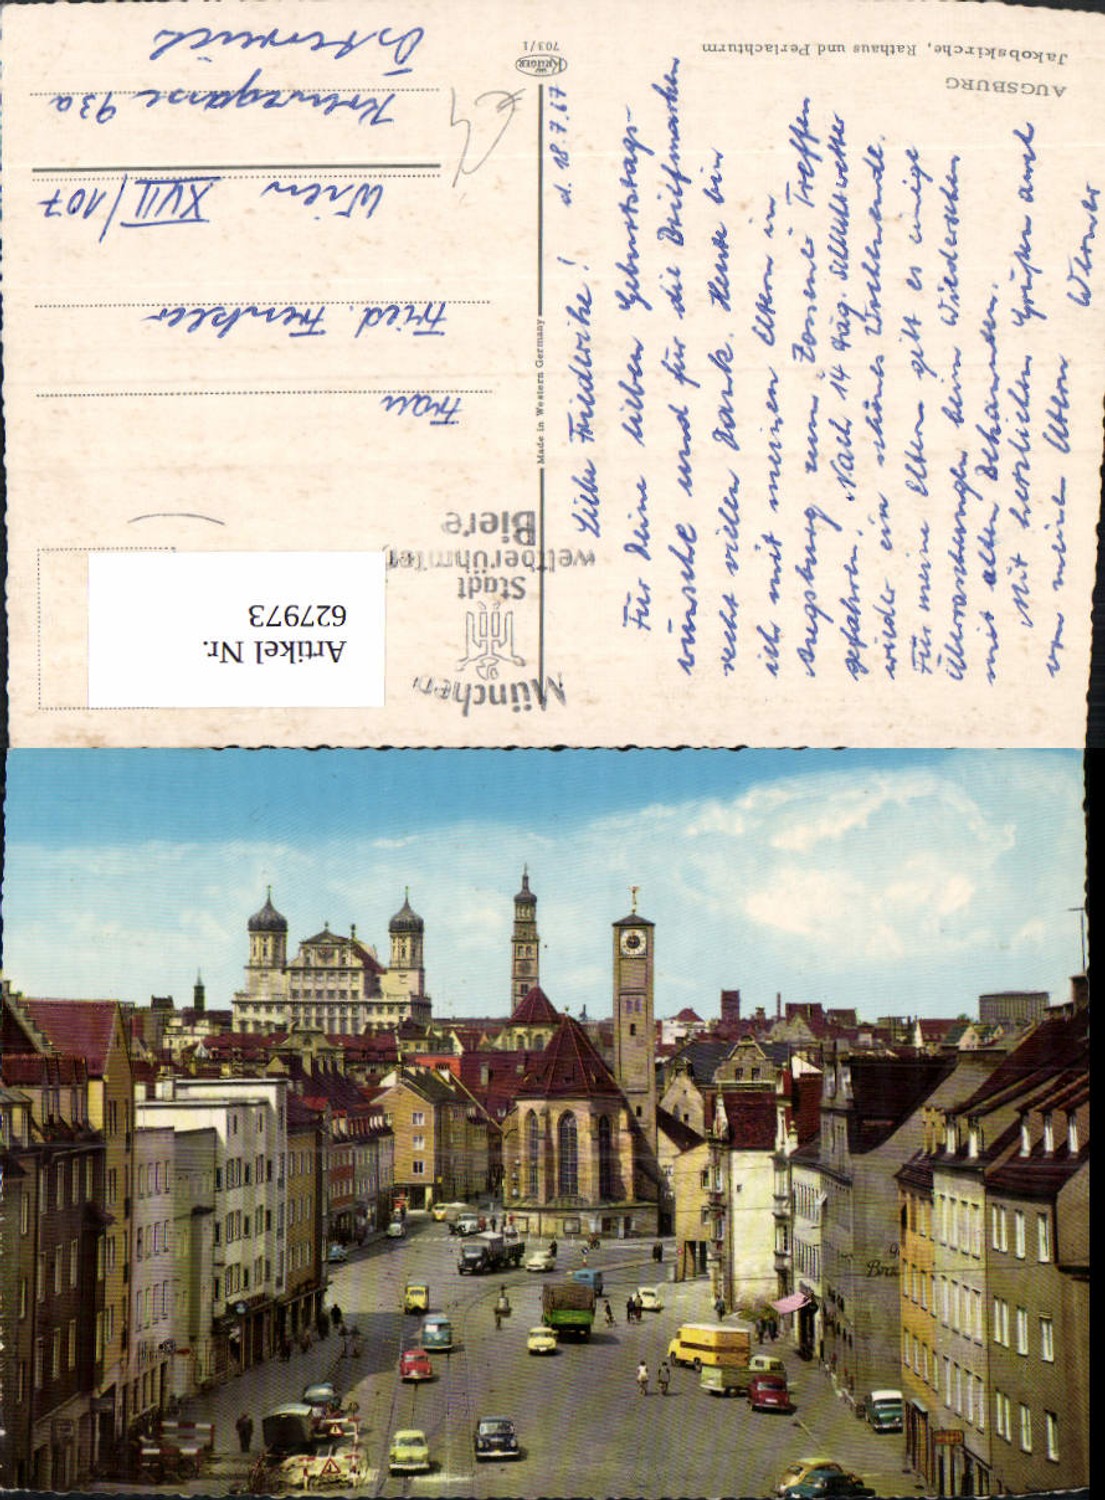 AUGSBURG
Jakobskirche, Rathaus und Perlachturm
d. 18.7.67
Liebe Friederike!
Für Deine lieben Geburtstags-
wünsche und für die Briefmarken
recht vielen Dank. Heute bin
ich mit meinen Eltern in
Augsburg zum Treffen
gefahren. Nach 14 täg.
wieder ein schönes Wochenende.
Für meine Eltern gibt es einige
Überraschungen beim Wiedersehen
mit alten Bekannten.
Mit herzlichen Grüßen auch
von meinen Eltern
Werner
703/1
KRÜGER
Made in Western Germany
München
Stadt
weltberühmter
Biere
Artikel Nr.
627973
Frau
Fried. Frenkler
Wien XVII/107
93a
Österreich
Bra